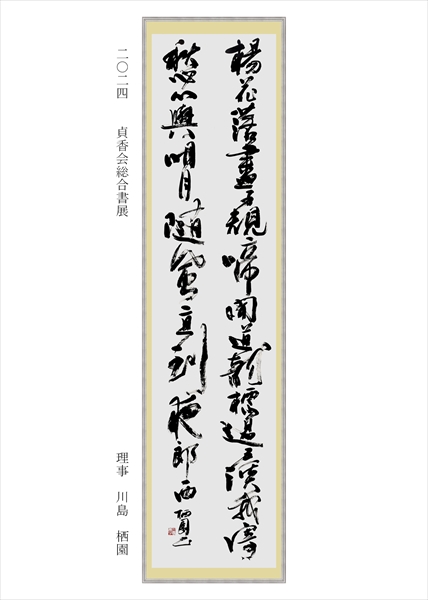 楊花落盡子規啼聞道龍標過五溪我寄
愁心與明月随風直到夜郎西
二〇二四　貞香会総合書展
理事　川島　栖園